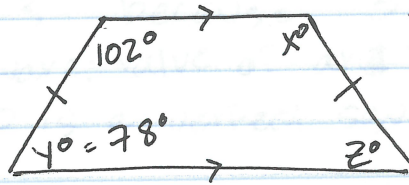 102° x°
y° = 78° z°